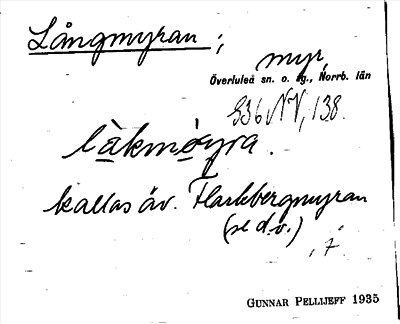 Långmyran ;
myr,
Överluleå sn. o. tg., Norrb. län
S36 NV, 138.
làkmo̱yra.
kallas äv. Flarkbergmyran
(se d.o.)
GUNNAR PELLIJEFF 1935